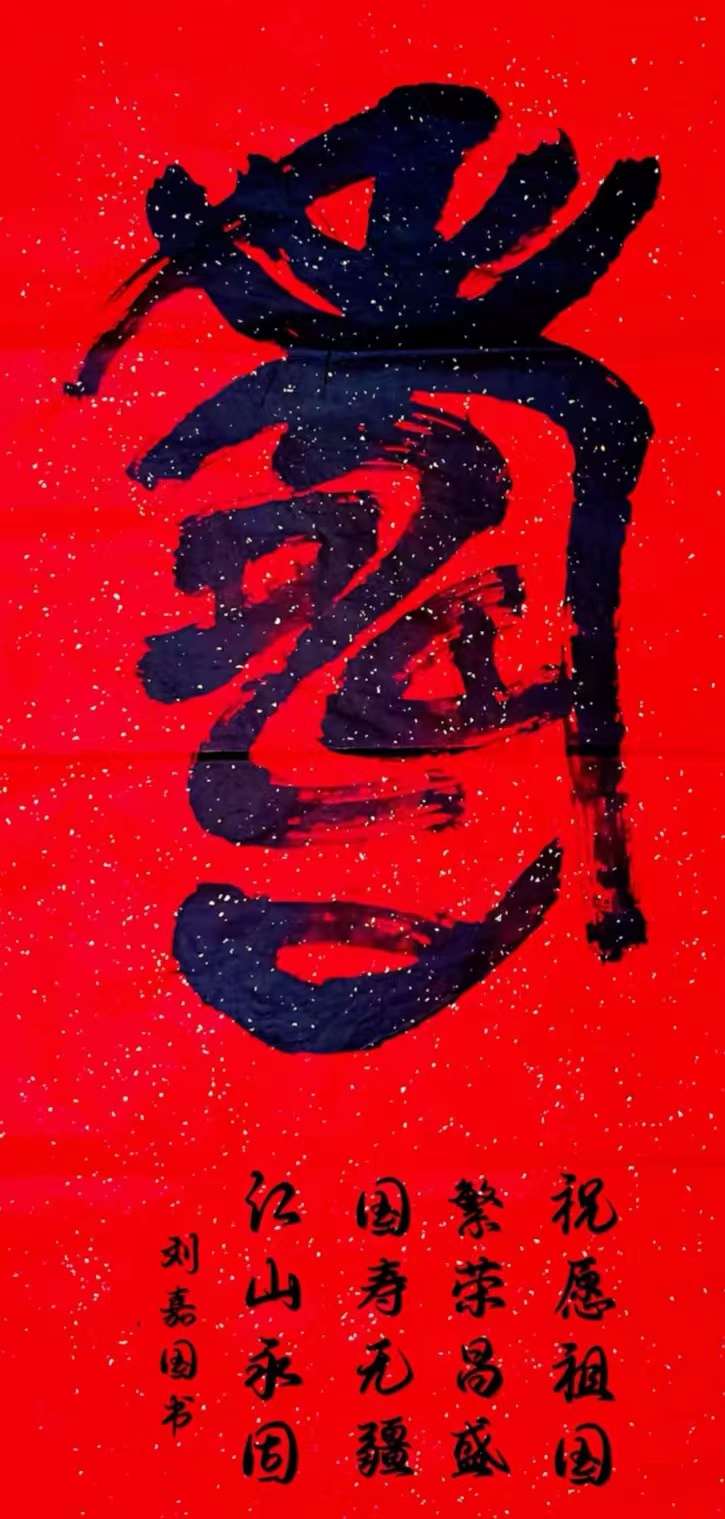 祝愿祖国
繁荣昌盛
国寿无疆
江山永固
刘嘉国书